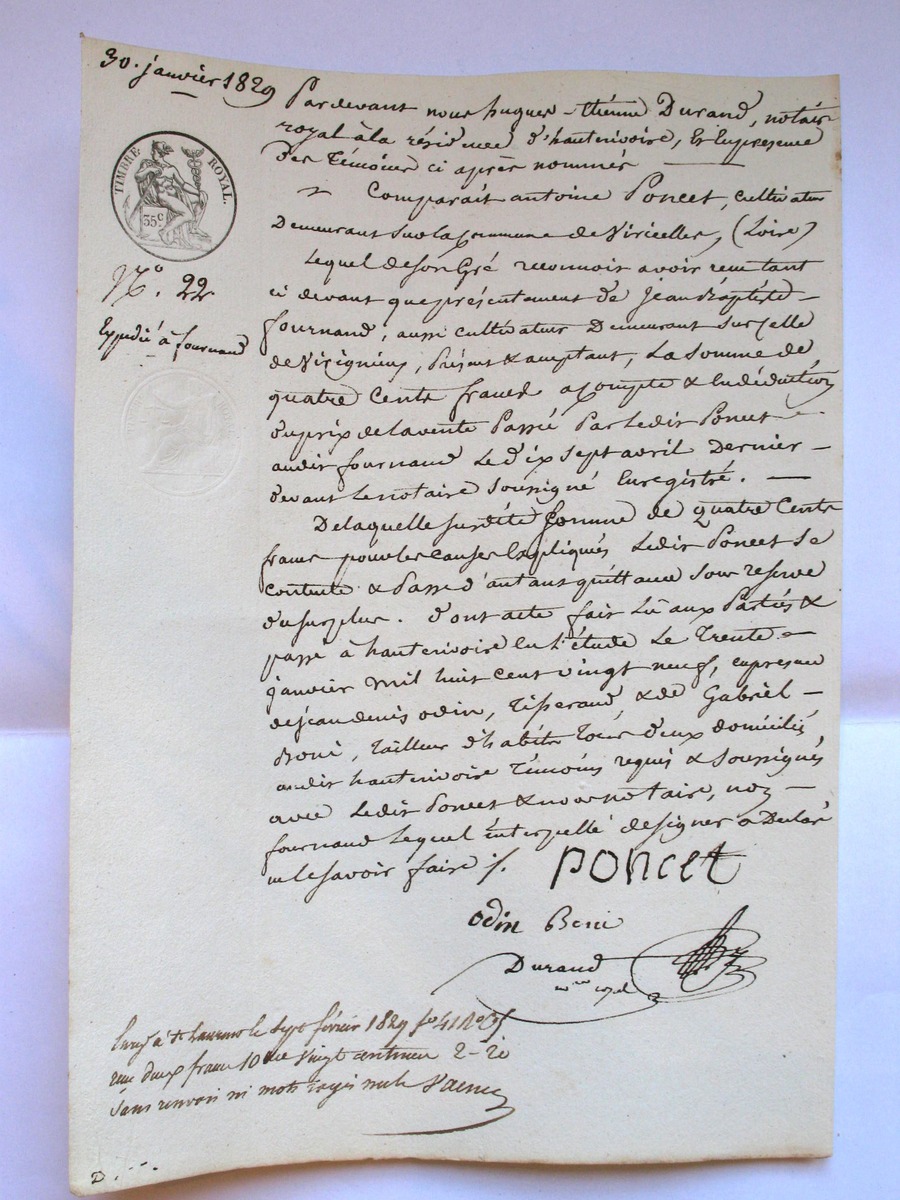 30. janvier 1829
TIMBRE ROYAL.
35c
No. 22
Expédié à fournand
Pardevant nous hugues-étienne Durand, notaire
royal à la résidence d'hauterivoire, Et En presence
Des Témoins ci après nommés
Comparait antoine Poncet, cultivateur
Demeurant sur la Commune de Viricelles, (Loire)
Lequel de son Gré reconnoit avoir reçu tant
ci devant que présentement de Jean Baptiste
fournand, aussi cultivateur Demeurant sur celle
de Virigneux, Présent & acceptant, La somme de
quatre Cents francs acompte & En déduction
du prix de la vente Passé Par Ledit Poncet
audit fournand Le dix sept avril Dernier
devant Le notaire soussigné Enregistré.
De laquelle susdite Somme de quatre Cents
francs pour les causes Expliqués Ledit Poncet se
contente & Passe d'autant quittance sous reserve
du surplus. dont acte fait Lû aux Partiés &
passé à hauterivoire En L'étude Le Trente
janvier mil huit cent vingt neuf, en presence
de jean denis odin, Tisserand, & de Gabriel
Tailleur d'habits Tous deux domiciliés
audit hauterivoire Témoins requis & soussignés
avec Ledit Poncet & nous notaire, non
fournand Lequel interpellé de signer a Déclaré
ne le savoir faire ./.
poncet
odin
Durand
Enreg. à St Laurent le sept février 1829 fo 41
reçu deux francs 10me vingt centimes 2-20
sans renvoi ni mots rayés nuls
D